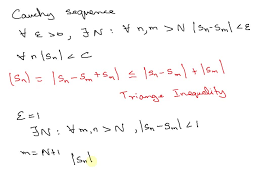 Cauchy sequence
∀ ε>0, ∃N : ∀ n,m > N |Sn-Sm|<ε
∀n |Sn| < C
|Sn| = |Sn-Sm+Sm| ≤ |Sn-Sm| + |Sm|
Triangle Inequality
ε=1
∃N: ∀m,n>N, |Sn-Sm|<1
m=N+1 |Sn|